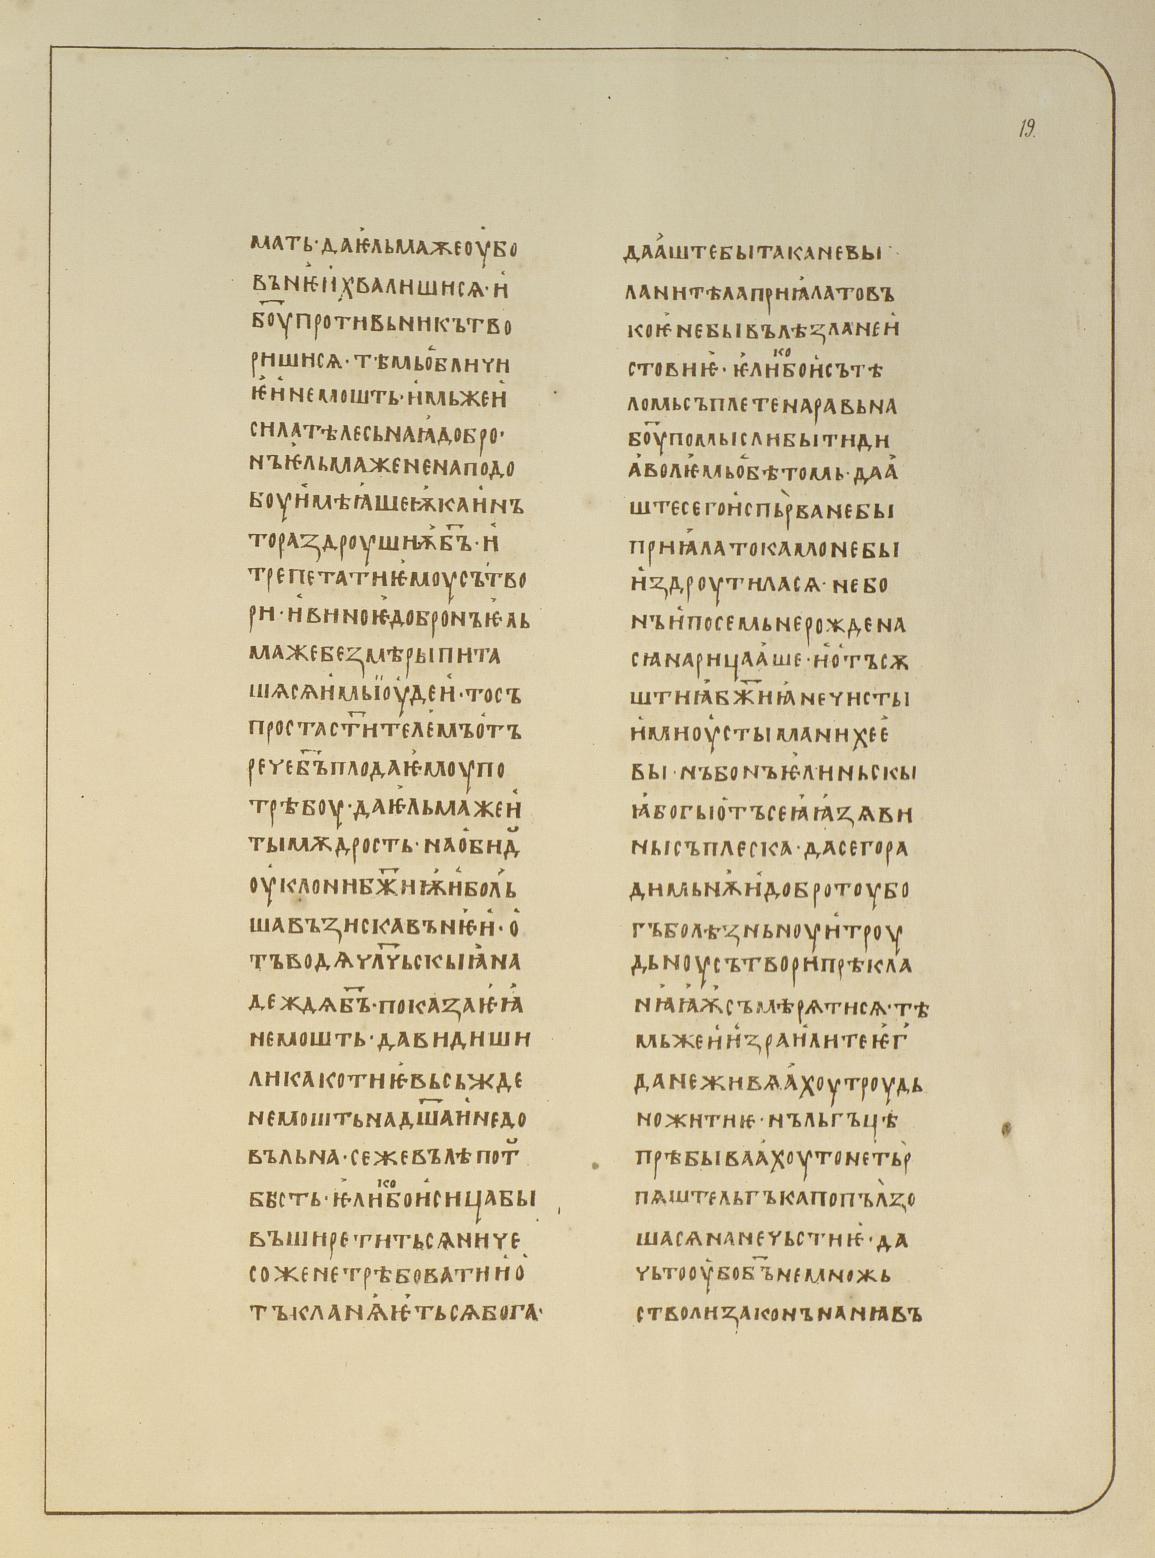 19.
мать·даѥльмажеоубо
вънѥ·и҆хвалишисѧ·и҆
боу҃противьникътво
ришисѧ·тѣмьо҆бличи
ѥи҆немошть·и҆мьжеи҆
силатѣлесьнаꙗдобро·
нъѥльмажененаподо
боуи҆мѣꙗшеѭкаи҆нъ
тораздроушиѭбъ҃·и҆
трепетатиѥмоусътво
ри·и҆виноѥдобронъѥль
мажебезмѣрыпита
шѧсѧи҆мыꙇоудеи҆·тосъ
простаст҃ителемъо҆тъ
речебъ҃плодаѥмоупо
трѣбоу·даѥльмажеи҆
тымѫдрость·нао҆бид
оуклонибж҃иѭи҆боль
шавъзискавънѥи҆·о҆
тъводѧчлч҃ьскыꙗна
деждѧбъ҃·показаѥꙗ
немошть·давидиши
ликакотиѥвьсьжде
немоштьнадш҃аи҆недо
въльна·сежевълѣпот
бꙑсть·ѥликобои҆сицабы
въширетитьсѧниче
соженетрѣбоватиио҆
тъкланѧѥтьсѧбога·
даа҆штебытаканебы
ланитѣлаприꙗлатовъ
коѥнебывълѣзланеи҆
стовиѥ·ѥликобои҆сътѣ
ломьсъплетенаравьна
боу҃помыслибытиди
а҆волѥмьо҆бѣтомь·даа҆
штесегои҆спьрванебы
приꙗлатокамонебы
и҆здроутиласѧ·небо
нъи҆посемьнерождена
сꙗнарицаа҆ше·и҆о҆тъсѫ
штиꙗбж҃иꙗнечисты
и҆миоустыманихее҆
вы·нъбонъѥлиньскы
ꙗбогыо҆тъсеꙗꙗзѧви
нысъплеска·дасегора
димьнѫи҆добротоубо
гъболѣзньноуи҆троу
дьноусътвори҆прѣкла
нꙗꙗѫсъмѣрѧтисѧ·тѣ
мьжеи҆и҆зраи҆литеѥг
данеживѧа҆хоутроудь
ножитиѥ·нъльгъцѣ
прѣбываа҆хоутонетьр
пѧштельгъкапопълзо
шасѧнанечьстиѥ·да
чьтооубобъ҃немножь
стволизаконънаниꙗвъ